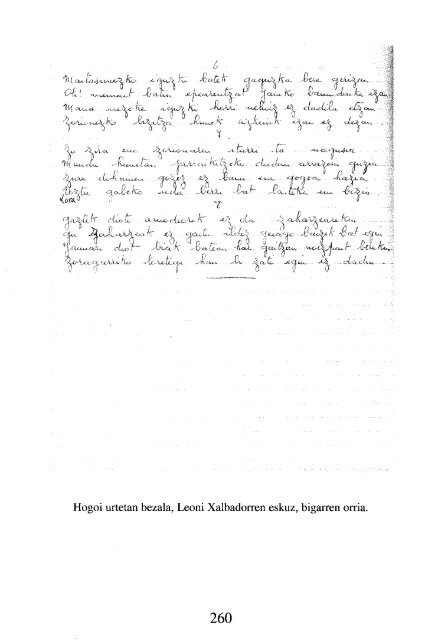 6
Maitasunezko iguzki batek gaguzka bere gerizan
Oh! memento batin epeurentzat Jainko baundute izan
Mana nezoke iguzki horri nehoiz ez dadila etzan
Zorionezko bizitza hunek azkenik izan ez dezan
7
Zu zira ene zorionaren iturri ta nagusia
Mundu hunetan jarraikitzeko dudan arrazoin guzia
Zure dohunen gozoz ez banu ene gogoa hazia
Loratu gabeko uda berri bat laiteke ene bizia
8
gaztek diote amodiorik ez da zahartzearekin
gu zahartzeak ez gaitu aldiz geiago baizik bat egin
Jaunari diot biak batean har gaitzan norpait berekin
Zoragarriko loretegi hau bi zati egin ez dadin
Hogoi urtetan bezala, Leoni Xalbadorren eskuz, bigarren orria.
260